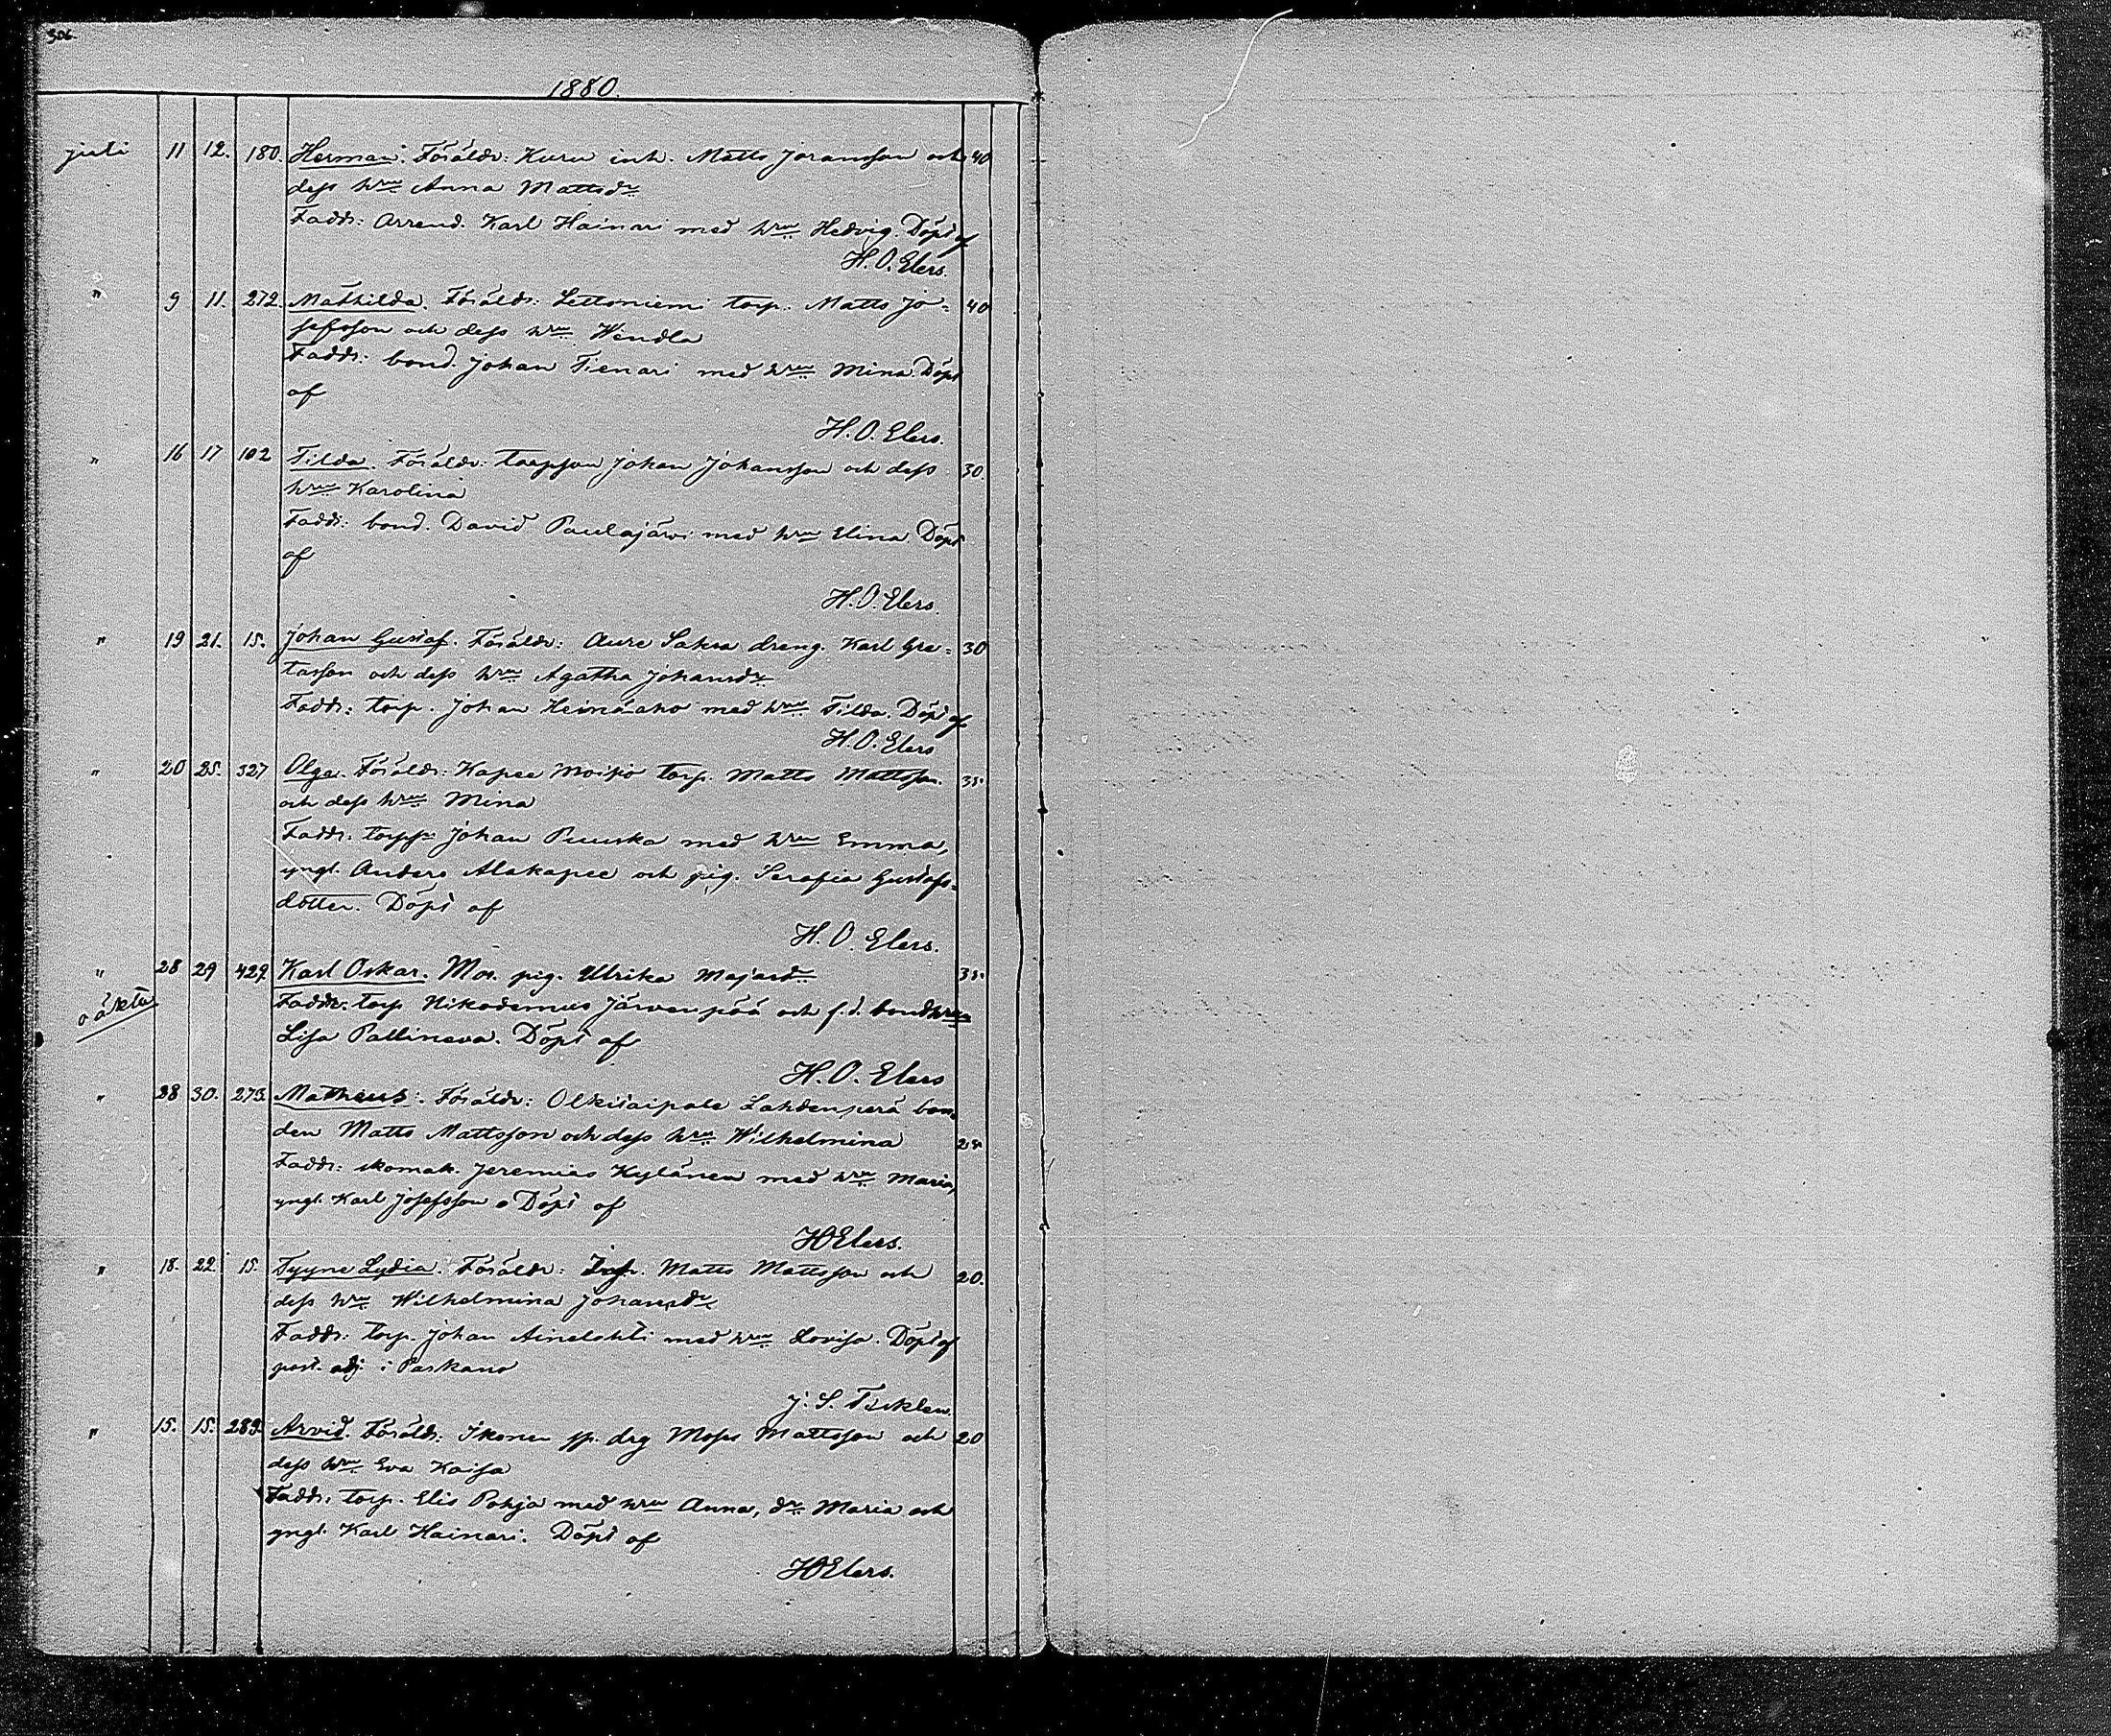 306.
1880.
juli 11 12. 180. Herman. Föräldr: Kuru inh. Matts Joransson och 40
dess hru Anna Mattsdr
Faddr: Arrend. Karl Hainari med hru Hedvig. Döpt af
H. O. Elers.
" 9 11. 272. Mathilda. Föräldr: Lettoniemi torp. Matts Jo- 40
sefsson och dess hru Wendla
Faddr: bond. Johan Tienari med hru Mina. Döpt
af
H. O. Elers.
" 16 17 102 Tilda. Föräldr: torpson Johan Johansson och dess 30.
hru Karolina
Faddr: bond. David Paulajärvi med hru Elina. Döpt
af
H. O. Elers.
" 19 21. 15. Johan Gustaf. Föräldr: Aure Saksa dräng. Karl Gre- 30
tasson och dess hru Agatha Johansdr
Faddr: torp. Johan Heinäaho med hru Tilda. Döpt af
H. O. Elers
" 20 25. 327 Olga. Föräldr: Kapee Moisio torp. Matts Mattsson. 35.
och dess hru Mina
Faddr: torpp Johan Puuska med hru Emma,
yngl. Anders Alakapee och pig. Serafia Gustafs-
dotter. Döpt af
H. O. Elers.
" 28 29 429. Karl Oskar. Mor. pig. Ulrika Majasdr 35.
oäkta
Faddr: torp Nikodemus Järvenpää och f.d. bondhru
Lisa Pallineva. Döpt af
H. O. Elers
" 28 30. 273. Matheus. Föräldr: Olkitaipale Lahdenperä bon-
den Matts Mattsson och dess hru Wilhelmina 25.
Faddr: skomak. Jeremias Kylänen med hru Maria,
yngl. Karl Josefsson. Döpt af
HOElers.
" 18. 22. 15. Tyyne Lydia. Föräldr: Matts Mattsson och 20.
dess hru Wilhelmina Johansdr
Faddr: torp. Johan Ainelahti med hru Lovisa. Döpt af
past. adj. i Parkano
J. S.
" 15. 15. 283. Arvid. Föräldr: Ikonen sp. drg Moses Mattsson och 20
dess hru Eva Kaisa
Faddr: torp. Elis Pohja med hru Anna, dr Maria och
yngl. Karl Hainari. Döpt af
HOElers.